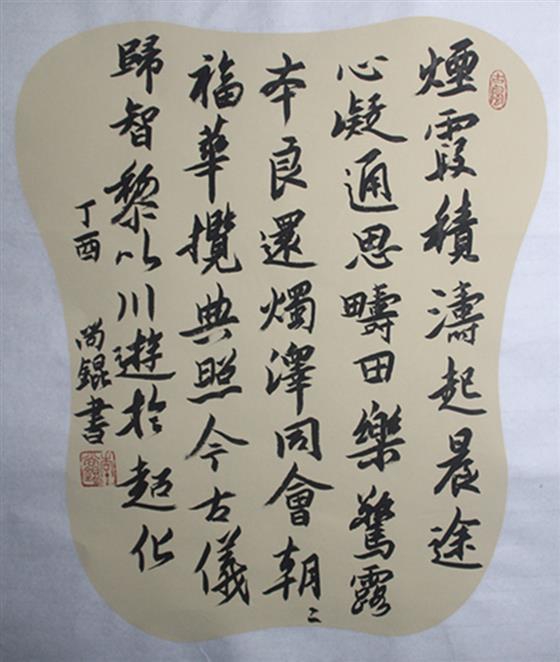 煙霞積濤起晨途
心凝通思疇田樂驚露
本良還燭澤同會朝二
福華攬典照今古儀
歸智黎以川遊於超化
丁酉
尚錕書